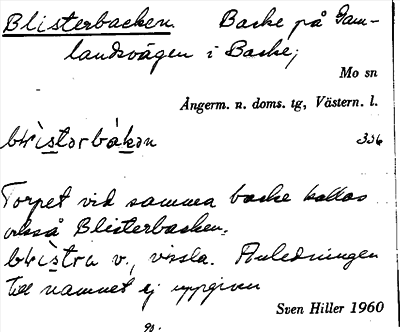 Blisterbacken. Backe på Gam-
landsvägen i Backe;
Mo sn
Angerm. n. doms. tg, Västern. l.
336
Torpet vid samma backe kallas
också Blisterbacken.
v., vissla. Anledningen
till namnet ej uppgiven
Sven Hiller 1960